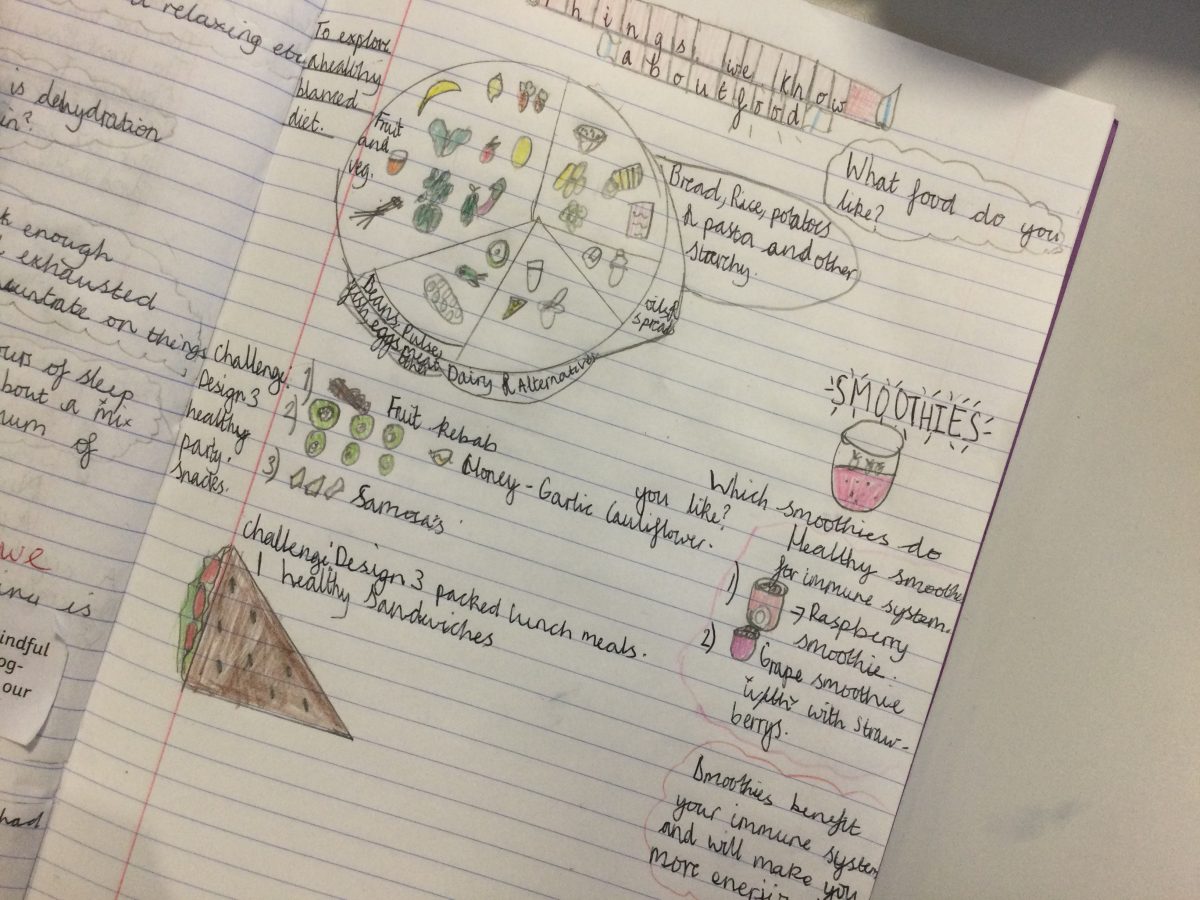 relaxing etc.
is dehydration
in?
enough
exhausted
on things
ours of sleep
bout a mix
num of
we
is
indful
og-
our
had
Things we know
about food
To explore
a healthy
blanced
diet.
Fruit
and
veg.
Bread, Rice, potatoes
& pasta and other
starchy.
oils &
spreads
Dairy & Alternatives
Beans, Pulses
fish eggs meat
What food do you
like?
Challenge:
Design 3
healthy
party
snacks.
1)
Fruit kebab
2)
Honey - Garlic Cauliflower.
3)
Samosa's
challenge: Design 3 packed lunch meals.
1 healthy Sandwiches
SMOOTHIES
Which smoothies do
you like?
Healthy smoothie
for immune system.
1)
→ Raspberry
smoothie.
2)
Grape smoothie
with straw-
berrys.
Smoothies benefit
your immune system
and will make you
more